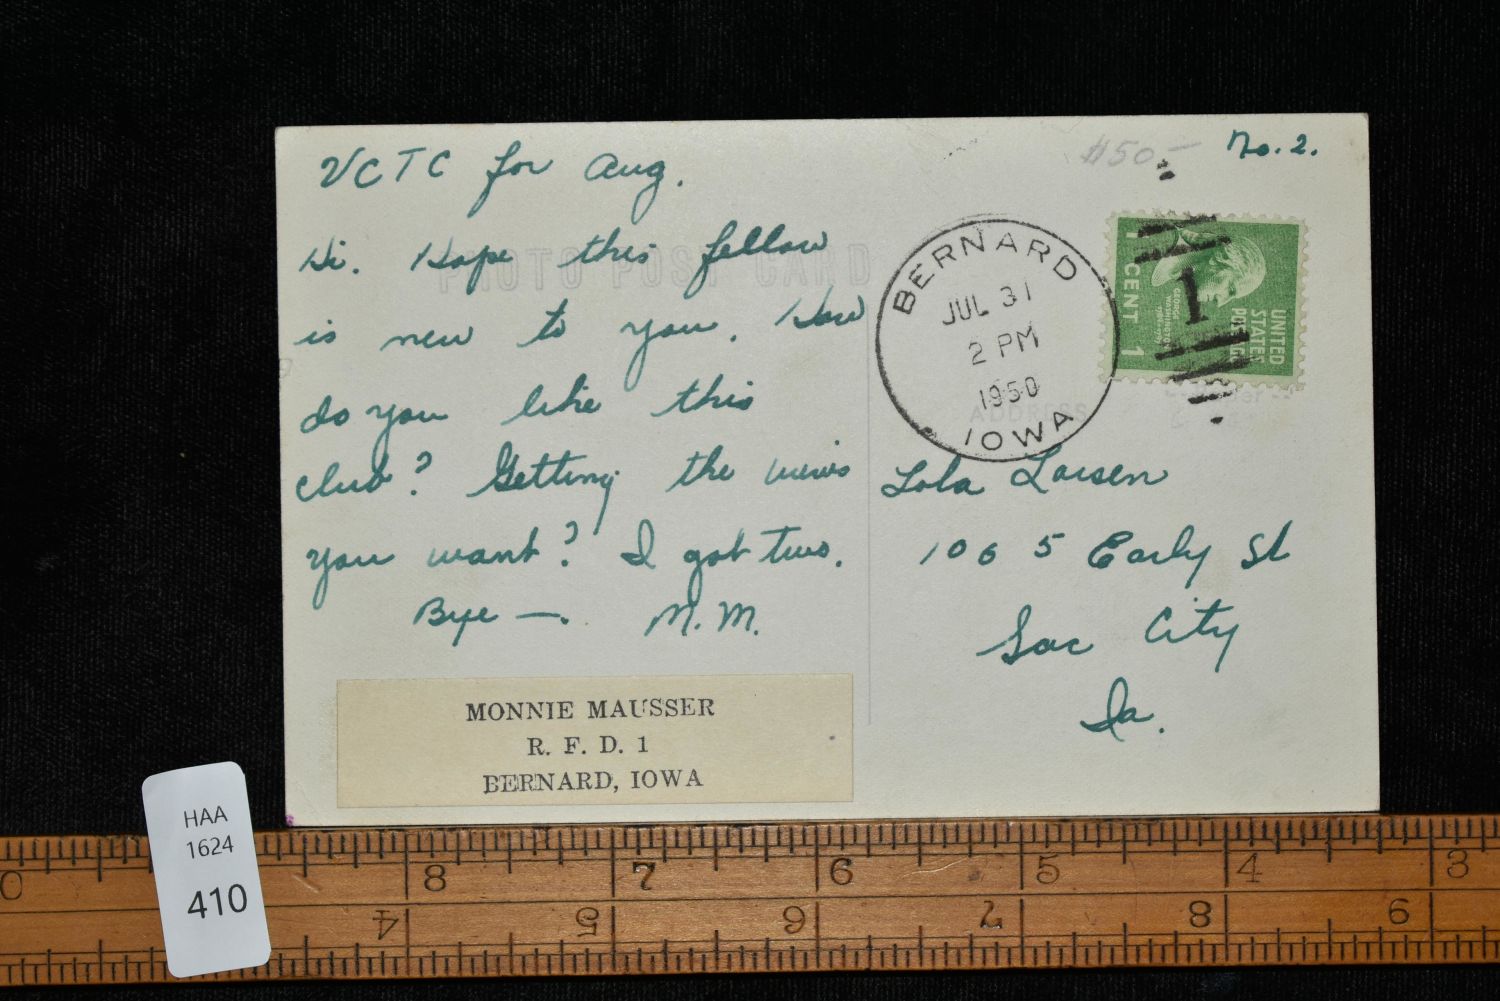 VCTC for Aug.
Hi. Hope this fellow
is new to you. How
do you like this
club? Getting the views
you want? I got two.
Bye —. M.M.
PHOTO POST CARD
MONNIE MAUSSER
R. F. D. 1
BERNARD, IOWA
$50—
No. 2.
BERNARD
JUL 31
2 PM
1950
IOWA
1 CENT 1
GEORGE WASHINGTON
UNITED
STATES
POSTAGE
1
ADDRESS
Lola Larsen
1065 Early St
Sac City
Ia.
HAA
1624
410
0 8 7 6 5 4 3
4 5 6 7 8 9